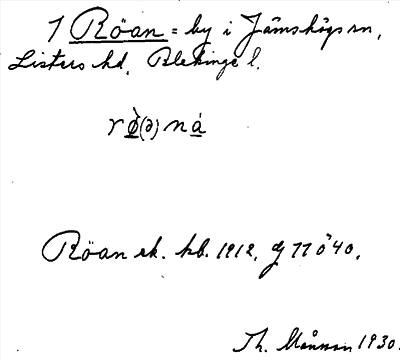 1 Röan = by i Jämshögs sn,
Listers hd, Blekinge l.
r ø̀(ə) n á
Röan ek. kb. 1912, Gj 77 ö 40.
Th. Månsson 1930.